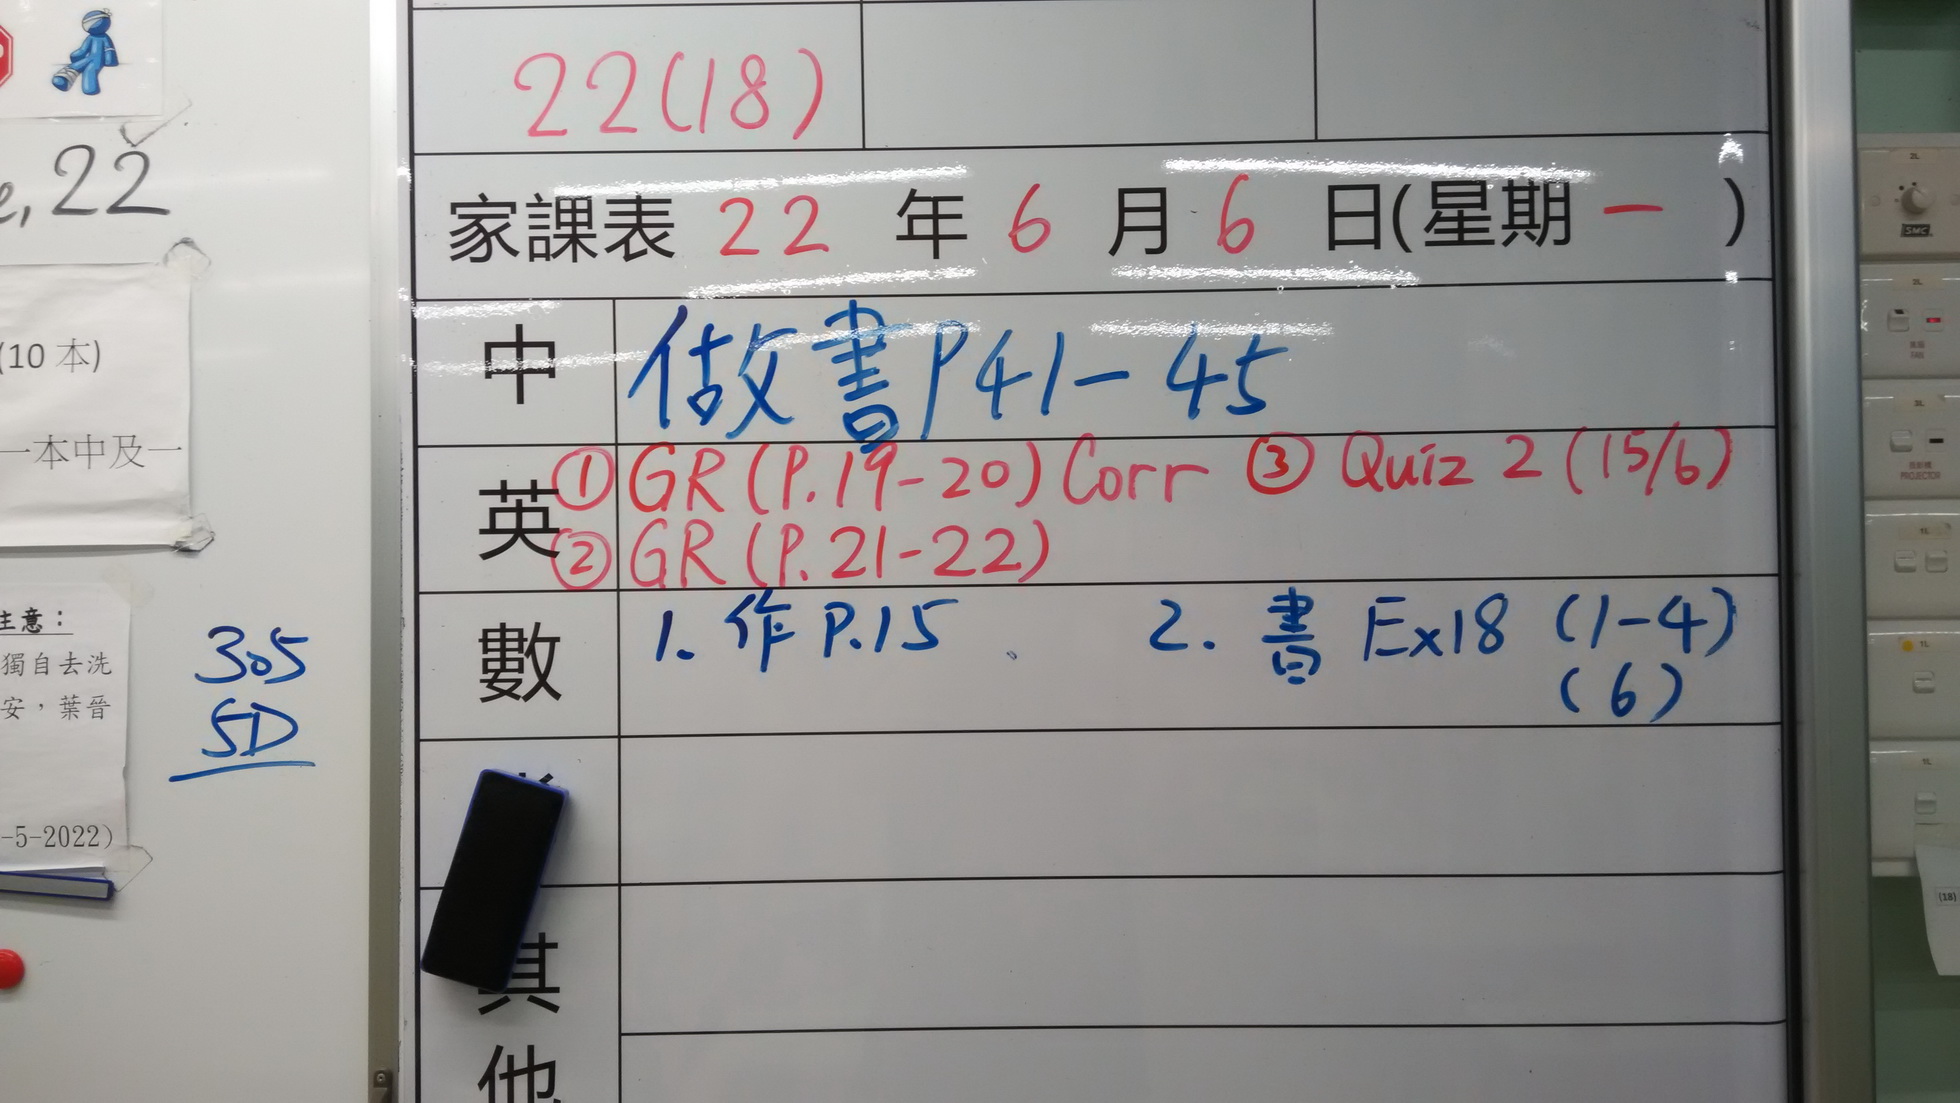 22(18)
家課表 22 年 6 月 6 日(星期一)
中 做書P41-45
英 ① GR (P.19-20) Corr ③ Quiz 2 (15/6)
② GR (P.21-22)
數 1. 作 P.15 2. 書 Ex18 (1-4)
(6)
其
他
22
(10 本)
一本中及一
注意：
獨自去洗
安，葉晉
-5-2022)
305
5D
2L
SMC
2L
FAN
3L
PROJECTOR
1L
1L
1L
(18)